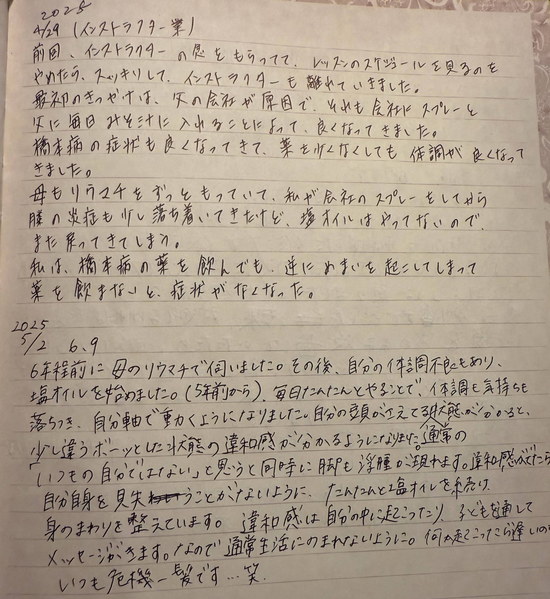 2025
4/29 (インストラクター業)
前回、インストラクターの念をもらってて、レッスンのスケジュールを見るのを
やめたら、スッキリして、インストラクターも離れていきました。
最初のきっかけは、父の会社が原因で、それも会社にスプレーと
父に毎日みそ汁に入れることによって、良くなってきました。
橋本病の症状も良くなってきて、薬を少くなくしても体調が良くなって
きました。
母もリウマチをずっともっていて、私が会社のスプレーをしてから
膝の炎症も少し落ち着いてきたけど、塩オイルはやってないので、
また戻ってきてしまう。
私は、橋本病の薬を飲んでも、逆にめまいを起こしてしまって
薬を飲まないと、症状がなくなった。
2025
5/2 6、9
6年程前に母のリウマチで伺いました。その後、自分の体調不良もあり、
塩オイルを始めました。(5年前から)、毎日たんたんとやることで、体調も気持も
落ちつき、自分軸で動くようになりました。自分の頭がさえてる状態がわかると、
少し違うボーッとした状態の違和感が分かるようになりました 通常の
「いつもの自分ではない」と思うと同時に脚も浮腫が現れます。違和感がでたら
自分自身を見失うことがないように、たんたんと塩オイルを続け、
身のまわりを整えています。違和感は自分の中に起こったり、子どもを通して
メッセージがきます。なので通常生活にのまれないように。何か起こったら遅いの
いつも危機一髪です…笑